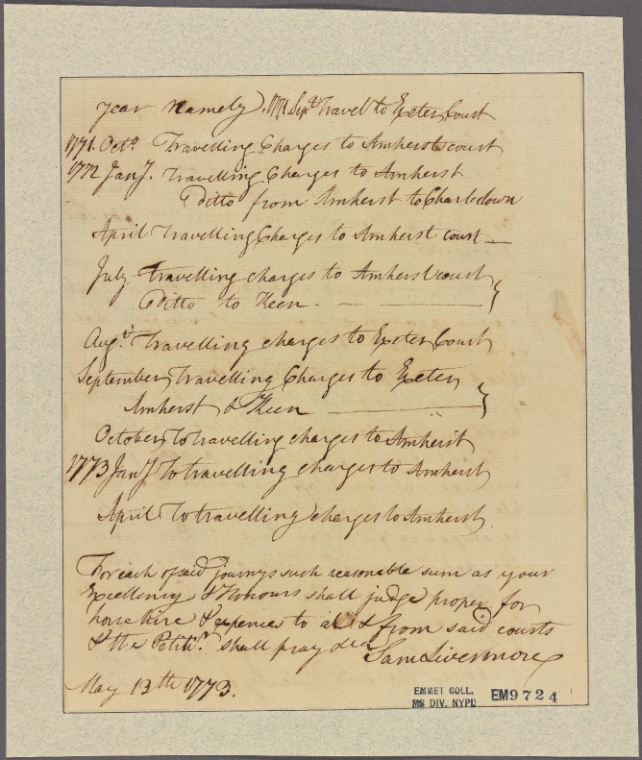 year namely, 1771. Sept. Travel to Exeter Court
1771. Octo. Travelling Charges to Amherst court
1772 Jany. Travelling Charges to Amherst
Ditto from Amherst to Charlestown
April Travelling Charges to Amherst court —
July Travelling charges to Amherst court
Ditto to Keen. — —
Augt. Travelling charges to Exeter Court
September Travelling Charges to Exeter
Amherst & Keen —
October To travelling charges to Amherst
1773 Jany To travelling charges to Amherst
April To travelling charges to Amherst
For each of said journeys such reasonable sum as your
Excellency & Honours shall judge proper for
horse hire & expences to and & from said courts
& the Petitr. shall pray &ca
Sam Livermore
May 13th 1773.
EMMET COLL.
MS DIV. NYPL
EM9724